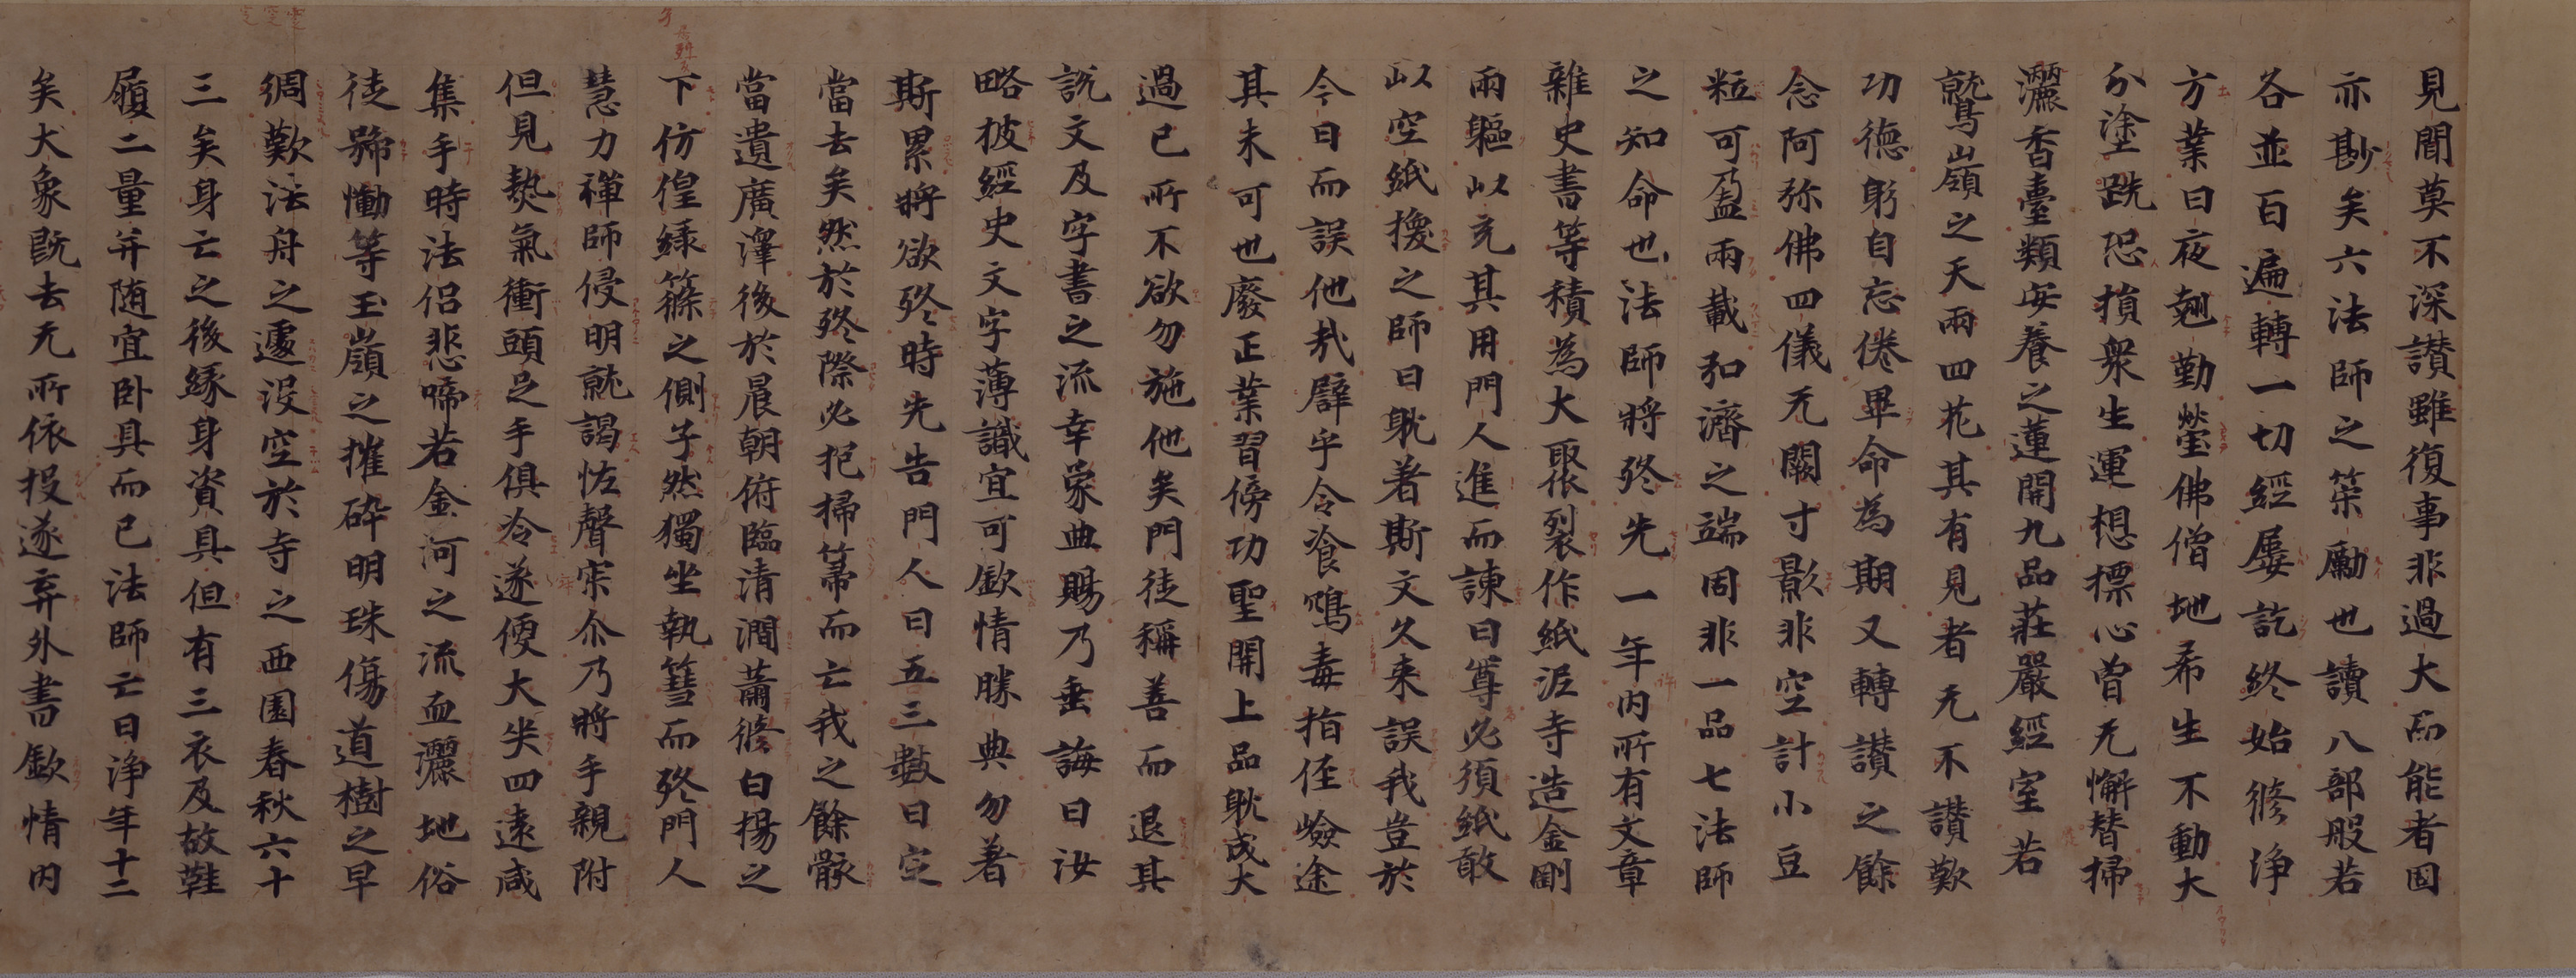 見聞莫不深讃雖復事非過大而能者固
亦尠矣六法師之策勵也讀八部般若
各並百遍轉一切經屢訖終始修淨
方業日夜翹勤瑩佛僧地希生不動大
分塗跣恐損衆生運想標心曽无懈替掃
灑香臺類安養之蓮開九品莊嚴經室若
鷲嶺之天雨四花其有見者无不讃歎
功德躬自忘倦畢命為期又轉讃之餘
念阿弥佛四儀无闕寸影非空計小豆
粒可盈兩載弘濟之端固非一品七法師
之知命也法師將終先一年内所有文章
雜史書等積為大聚裂作紙泥寺造金剛
兩軀以充其用門人進而諫曰尊必須紙敢
以空紙換之師曰躭著斯文久来誤我豈於
今日而誤他哉譬乎令飡鴆毒指侄嶮途
其未可也廢正業習傍功聖開上品躭成大
過已所不欲勿施他矣門徒稱善而退其
說文及字書之流幸蒙曲賜乃垂誨曰汝
略披經史文字薄識宜可欽情勝典勿著
斯累將欲終時先告門人曰五三數日定
當去矣然於終際必抱掃箒而亡我之餘骸
當遺廣澤後於晨朝俯臨清澗蕭條白揚之
下仿偟緑篠之側孑然獨坐執篲而終門人
慧力禅師侵明就謁怪聲寂尒乃將手親附
但見熱氣衝頭足手俱冷遂便大哭四遠咸
集手時法侶悲啼若金河之流血灑地俗
徒號慟等玉嶺之摧碎明珠傷道樹之早
凋歎法舟之遽沒空於寺之西園春秋六十
三矣身亡之後緣身資具但有三衣及故鞋
履二量并随宜卧具而已法師亡日淨年十二
矣大象既去无所依投遂弃外書欽情内